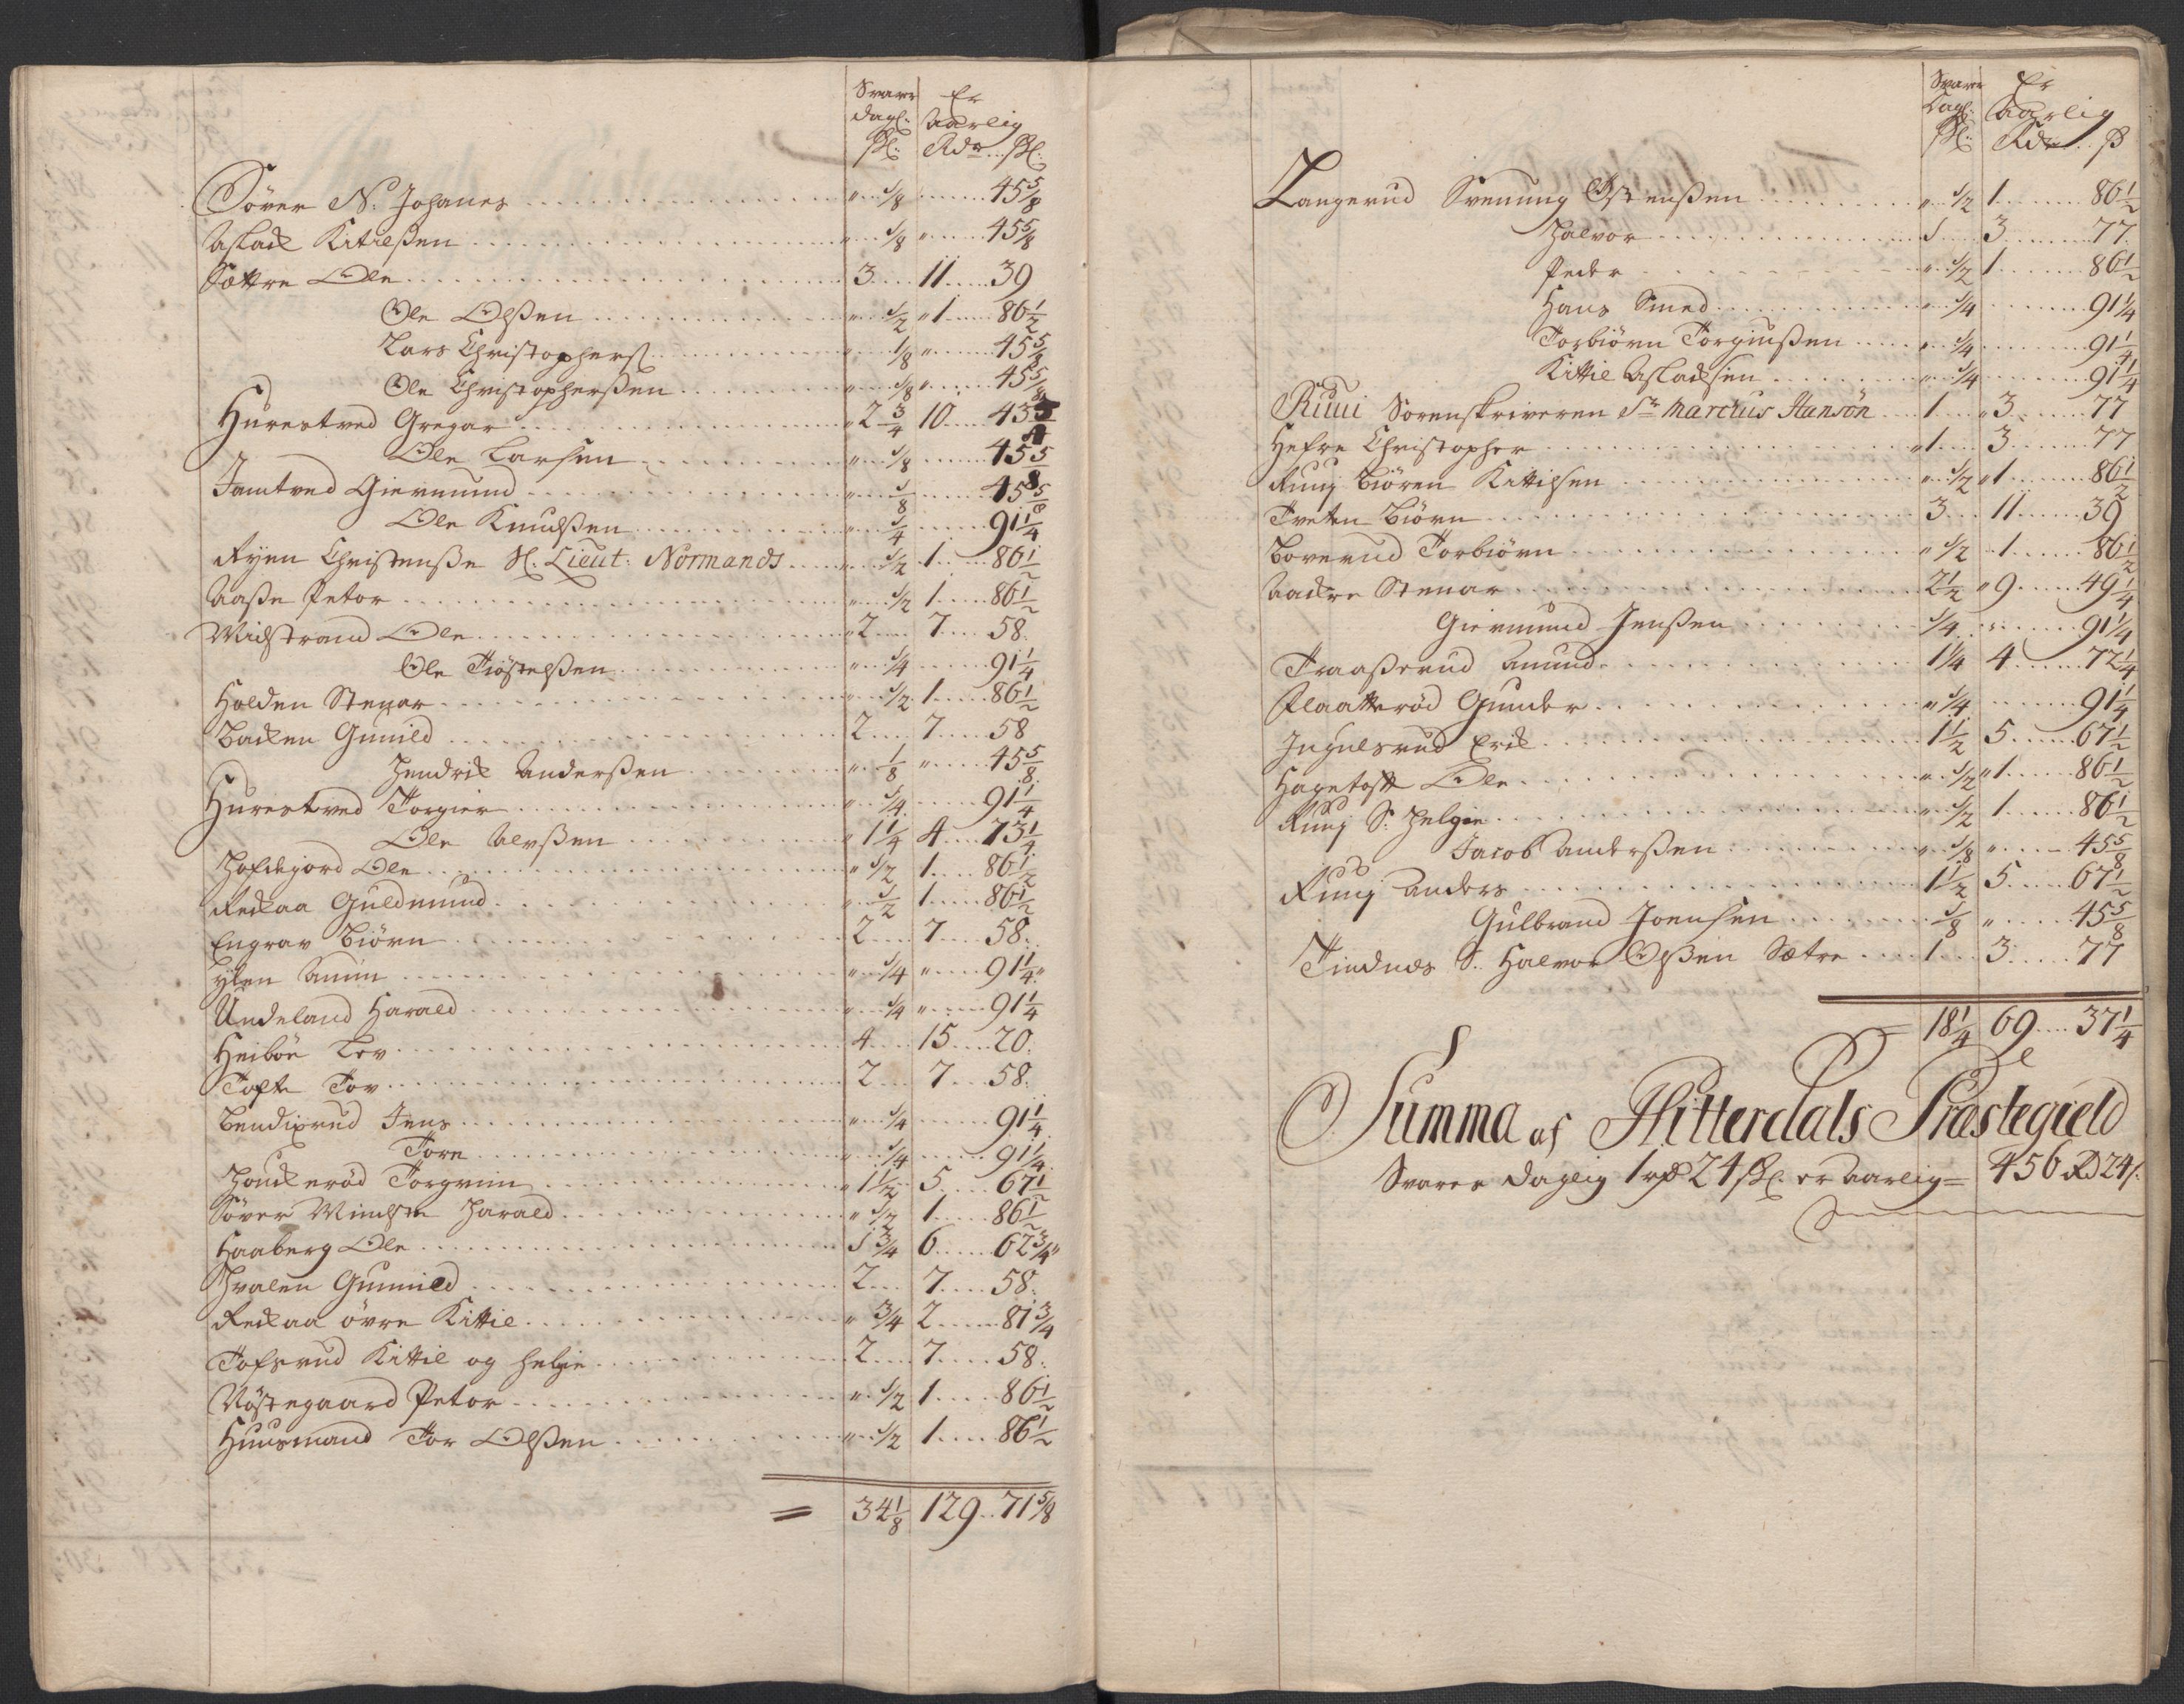 Svarer Er
dagl: Aarlig
ſkl: Rdr ſkl:
Söver N. Johanes „ 1/8 45 5/8
Aslack Kitilßen „ 1/8 „ 45 5/8
Sættre Ole 3 11 39
Ole Olßen „ 1/2 „1 86 1/2
Lars Christophers „ 1/8 „ 45 5/8
Ole Christopherßen „ 1/8 „ 45 5/8
Hurestved Gregar „ 2 3/4 10 43
Ole Larsen „ 1/8 45 5/8
Jamtved Giermund „ 1/8 45 5/8
Ole Knudßen „ 1/4 91 1/4
Ryen Christenße Sl. Lieut: Normands „ 1/2 1 86 1/2
Aaße Petor „ 1/2 1 86 1/2
Midstrand Ole „2 7 58
Ole Tiöstelßen „ 1/4 91 1/4
Holden Stenar „ 1/2 1 86 1/2
Backen Gunild 2 7 58
Hendrik Anderßen „ 1/8 „ 45 5/8
Hurestved Torgier „ 1/4 91 1/4
Ole Alvßen „ 1 1/4 4 73 1/4
Hofdejord Ole „ 1/2 1 86 1/2
Reckaa Guldmund „ 1/2 1 86 1/2
Engrav Biörn 2 7 58
Ylen Anun „ 1/4 „ 91 1/4
Undeland Harald „ 1/4 „ 91 1/4
Heiböe Lev 4 15 20
Tofte Tov 2 7 58
Bendixrud Jens „ 1/4 91 1/4
Tore „ 1/4 91 1/4
Houckeröd Torgrim „ 1 1/2 5 67 1/2
Söver Mindste Harald „ 1/2 1 86 1/2
Haaberg Ole 1 3/4 6 62 3/4
Hvalen Gunnild 2 7 58
Reckaa övre Kittil „ 3/4 2 81 3/4
Tofsrud Kittil og Helgie 2 7 58
Nöstegaard Petor „ 1/2 1 86 1/2
Huusmand Tor Olßen „ 1/2 1 86 1/2
= 34 1/8 129 71 5/8
Svarer Er
Dagl: Aarlig
ſkl: Rdr ß
Langerud Svenung Östenßen „ 1/2 1 86 1/2
Halvor 1 3 77
Peder „ 1/2 1 86 1/2
Hans Smed „ 1/4 91 1/4
Torbiörn Torgiußen „ 1/4 91 1/4
Kittil Aslacksen „ 1/4 91 1/4
Ruui Sorenskriveren Sr Marcus Hansön 1 „3 77
Hefre Christopher „1 3 77
Ruuj Biören Kittilsen „ 1/2 „1 86 1/2
Tveten Biörn 3 11 39
Boverud Torbiörn „ 1/2 1 86 1/2
Aackre Stenar 2 1/2 „9 49 1/4
Giermund Jenßen 1/4 91 1/4
Traaßerud Amund 1 1/4 4 72 1/4
Plaatteröd Gunder „ 1/4 91 1/4
Ingulsrud Erik 1 1/2 5 67 1/2
Hagetoft Ole „ 1/2 „1 86 1/2
Ruuj S: Helgie „ 1/2 1 86 1/2
Jacob Anderßen „ 1/8 „ 45 5/8
Ruuj Anders 1 1/2 5 67 1/2
Gulbrand Joensen 1/8 „ 45 5/8
Tindnæs S. Halvor Olßen Sætre 1 3 77
18 1/4 69 37 1/4
Summa af Hitterdals Præstegield
Svarer daglig 1 rd 24 ſkl. er Aarlig = 456 Rd 24 ſ.